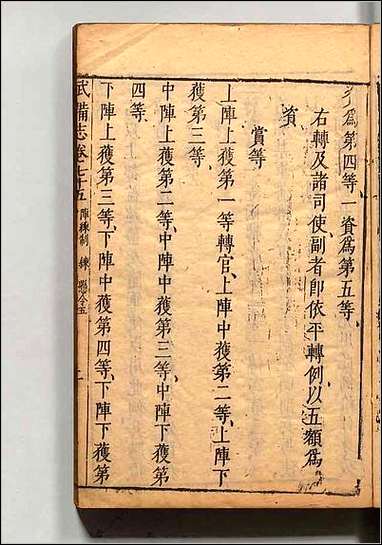 爲第四等一資爲第五等
右轉及諸司使副者即依平轉例以五額爲
資
賞等
上陣上獲第一等轉官上陣中獲第二等上陣下
獲第三等
中陣上獲第二等中陣中獲第三等中陣下獲第
四等
下陣上獲第三等下陣中獲第四等下陣下獲第
武備志卷七十五 陣練制 練